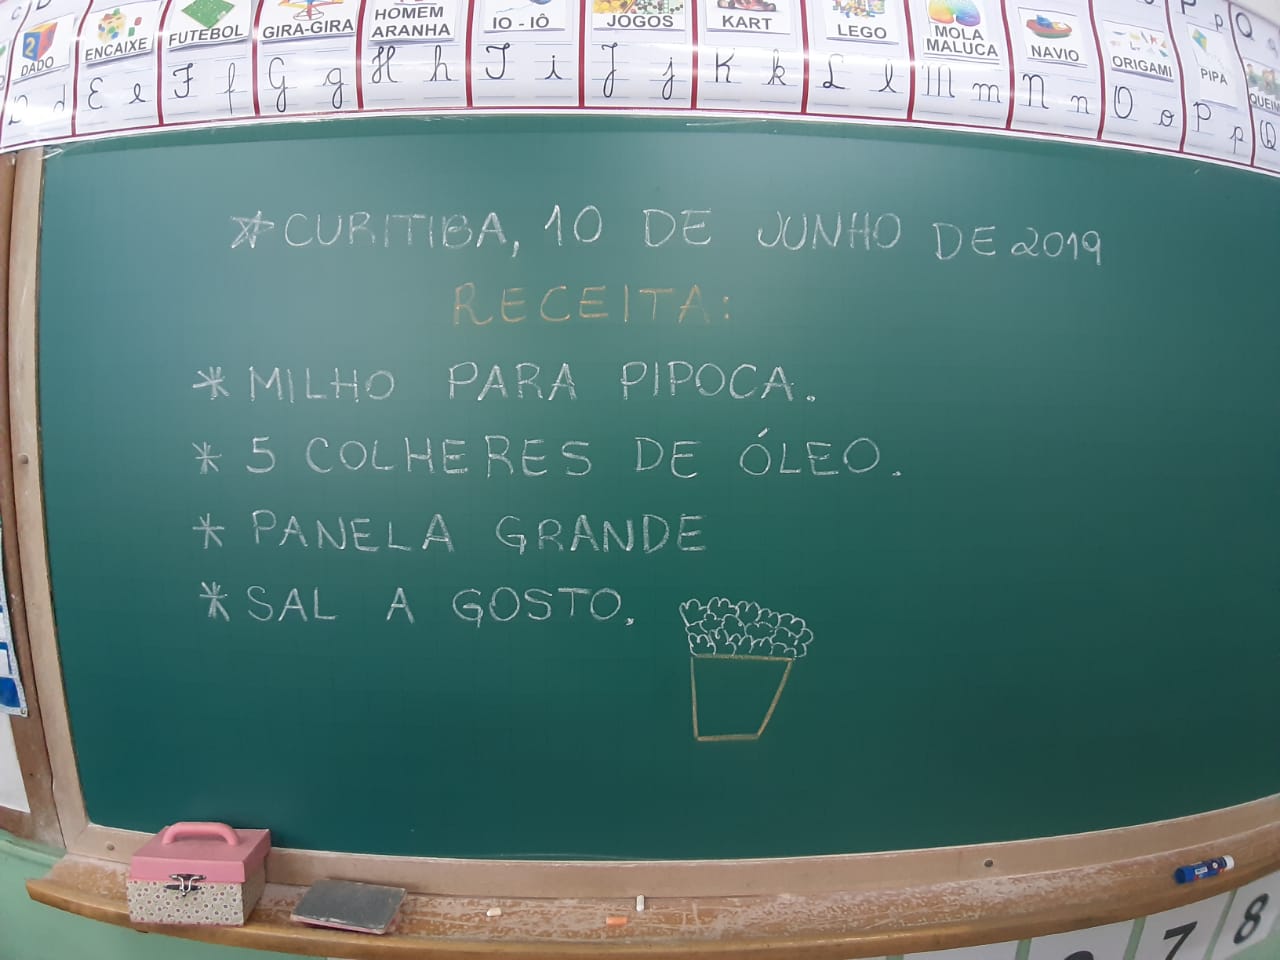 DADO
ENCAIXE
FUTEBOL
GIRA-GIRA
HOMEM
ARANHA
IO - IÔ
JOGOS
KART
LEGO
MOLA
MALUCA
NAVIO
ORIGAMI
PIPA
P p Q
D d E e F f G g H h I i J j K k L l M m N n O o P p Q
* CURITIBA, 10 DE JUNHO DE 2019
RECEITA:
* MILHO PARA PIPOCA.
* 5 COLHERES DE ÓLEO.
* PANELA GRANDE
* SAL A GOSTO.
7 8